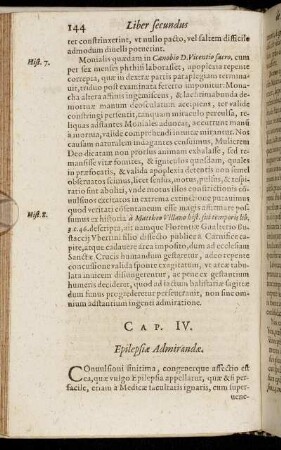 144 Liber secundus
ter constrinxerint, vt nullo pacto, vel saltem difficilè
admodum diuelli potuerint.
Hist. 7. Monialis quædam in Cænobio D. Vincentio sacro, cum
per sex menses phthisi laborasset, apoplexia repente
correpta, quæ in dexteræ partis paraplegiam termina-
uit, triduo post exanimata feretro imponitur. Mona-
cha altera affini insignitens, & lachrimabunda de-
mortuæ manum exosculatum accipiens, ter validè
constringi persentit, tanquam miraculo perculsa,
reliquas adstantes Moniales aduocat, accedunt manu
à mortua, validè comprehendi inuitæ mirantur. Nos
causam naturalem indagantes consuimus, Mulierem
Deo dicatam non prorsus animam exhalasse, sed
remansisse vitæ fomites, & igniculos quosdam, qualis
in præfocatis, & valida apoplexia detentis non simel
obseruatos scimus, licet sensus, motus, pulses, & respi-
ratio sint aboliti, vnde motus illos constrictionis
euulsino excitatos vi extrinseca putauimus
quod veritati consentaneum esse magis affirmare
Hist. 8. sumus ex historia, à Matthæo Villano hist. sui temporis lib.
8. c. 46. descripta, ait namque Florentiæ Gualterio
stacij Vbertini filio dissectio publicè à Carnifice
capite, atque cadauere arca imposito, dum ad ecclesiam
Sanctæ Crucis humandum gestaretur, adeo repente
concussione valida sponte exagitatum, vt arcæ tabu-
lata inuicem disiungerentur, ac penè ex gestantium
humeris decideret, quod ad iactum balistariæ sagittæ
dum funus progrederetur perseuerauit, non sine om-
nium adstantium ingenti admiratione.
CAP. IV.
Epilepsiæ Admirandæ.
COnuulsioni finitima, congenerque affectio est
ea, quæ vulgo Epilepsia appellatur, quæ & si per-
facile, etiam à Medicæ facultatis ignaris, cum super-
uene-